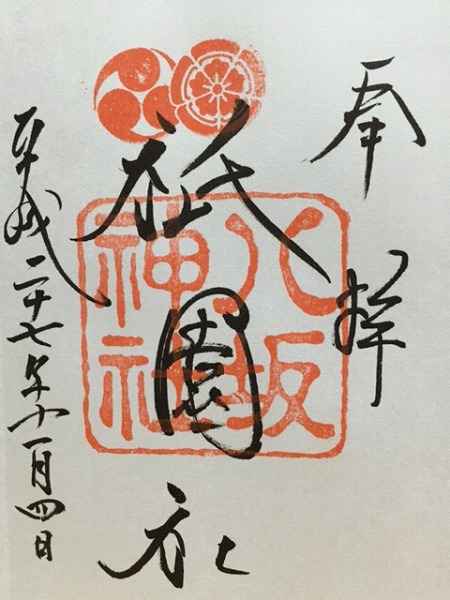 奉拝
八坂
神社
祇園社
平成二十七年十一月四日